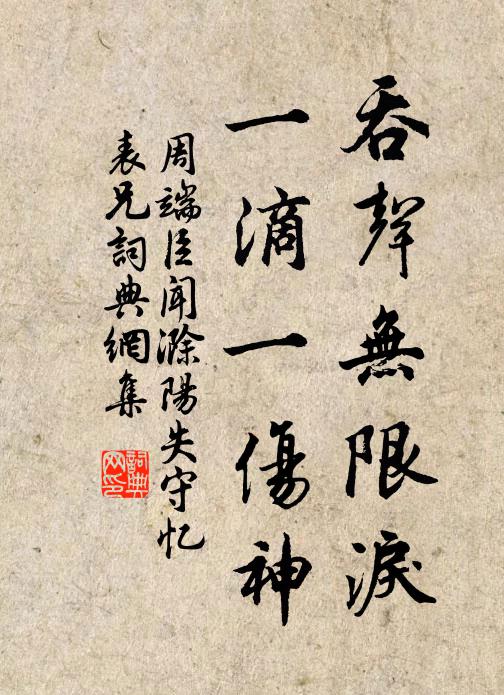 吞聲無限淚
一滴一傷神
周端臣闻滁陽失守忆
表兄詞典網集
詞典
网印